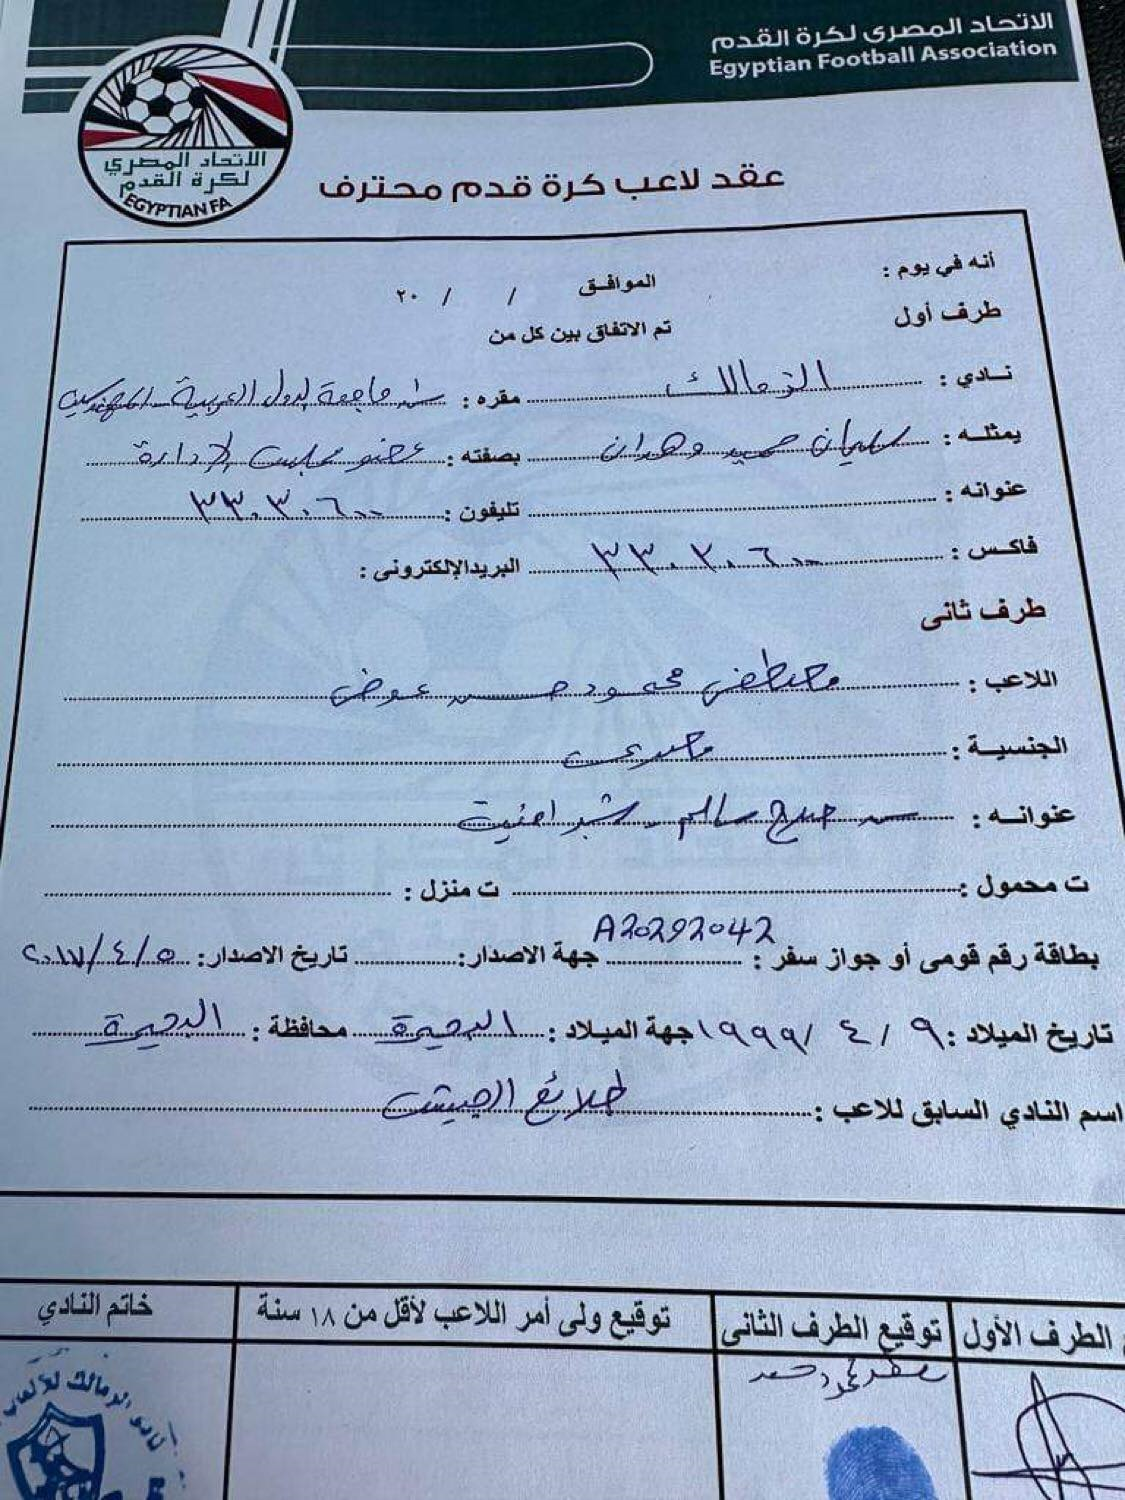 الاتحاد المصرى لكرة القدم
Egyptian Football Association
الاتحاد المصري
لكرة القدم
EGYPTIAN FA
عقد لاعب كرة قدم محترف
أنه في يوم : الموافق / / ٢٠
طرف أول
تم الاتفاق بين كل من
نادي : الزمالك مقره : ش جامعة الدول العربية - المهندسين
يمثله : سليمان حميد وهدان بصفته : عضو مجلس الإدارة
عنوانه : تليفون : ٣٣٠٣٠٦٠٠
فاكس : ٣٣٠٣٠٦٠٠ البريد الإلكترونى :
طرف ثانى
اللاعب : مصطفى محمود حسن عوض
الجنسية : مصرى
عنوانه : ش صلاح سالم - شبراخيت
ت محمول : ت منزل :
بطاقة رقم قومى أو جواز سفر : A20292042 جهة الاصدار: تاريخ الاصدار: ٢٠١٧/٤/٥
تاريخ الميلاد : ٩ / ٤ / ١٩٩٩ جهة الميلاد : البحيرة محافظة : البحيرة
اسم النادي السابق للاعب : طلائع الجيش
الطرف الأول توقيع الطرف الثانى توقيع ولى أمر اللاعب لأقل من ١٨ سنة خاتم النادي
محمود حسن
نادى الزمالك للألعاب